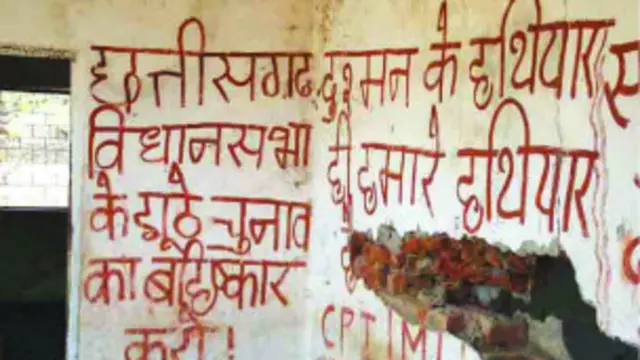 छत्तीसगढ़
विधानसभा
के झूठे चुनाव
का बहिष्कार
करो!
दुश्मन के हथियार
ही हमारे हथियार
CPI(M